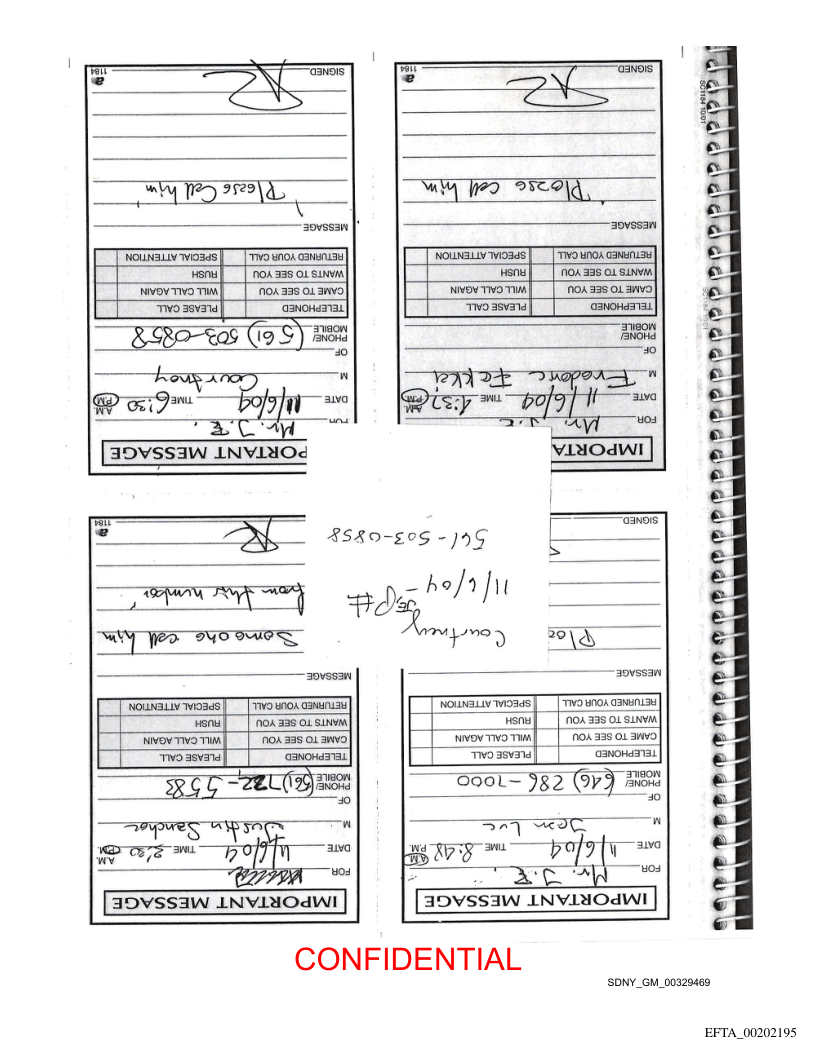 IMPORTANT MESSAGE
FOR Mr. J.E.
DATE 11/6/04 TIME 8:48 A.M. P.M.
M Jean Luc
OF
PHONE/ MOBILE (646) 286-7000
TELEPHONED PLEASE CALL
CAME TO SEE YOU WILL CALL AGAIN
WANTS TO SEE YOU RUSH
RETURNED YOUR CALL SPECIAL ATTENTION
MESSAGE
SIGNED
IMPORTANT MESSAGE
FOR
DATE 11/6/04 TIME 2:30 A.M. P.M.
M Justin Sanchez
OF
PHONE/ MOBILE (561) 722-5583
TELEPHONED PLEASE CALL
CAME TO SEE YOU WILL CALL AGAIN
WANTS TO SEE YOU RUSH
RETURNED YOUR CALL SPECIAL ATTENTION
MESSAGE
Someone call him
from this number"
1184
Courtney
JE P#
11/6/04 -
561-503-0858
IMPORTANT MESSA
FOR Mr. J.E
DATE 11/6/04 TIME 4:37 A.M. P.M.
M Frederic Fekkai
OF
PHONE/ MOBILE
TELEPHONED PLEASE CALL
CAME TO SEE YOU WILL CALL AGAIN
WANTS TO SEE YOU RUSH
RETURNED YOUR CALL SPECIAL ATTENTION
MESSAGE
"Please call him
SIGNED
1184
PORTANT MESSAGE
FOR Mr. J.E.
DATE 11/6/04 TIME 6:30 A.M. P.M.
M Courtney
OF
PHONE/ MOBILE (561) 503-0858
TELEPHONED PLEASE CALL
CAME TO SEE YOU WILL CALL AGAIN
WANTS TO SEE YOU RUSH
RETURNED YOUR CALL SPECIAL ATTENTION
MESSAGE
"Please Call him"
SIGNED
1184
SC1184 10/01
CONFIDENTIAL
SDNY_GM_00329469
EFTA_00202195